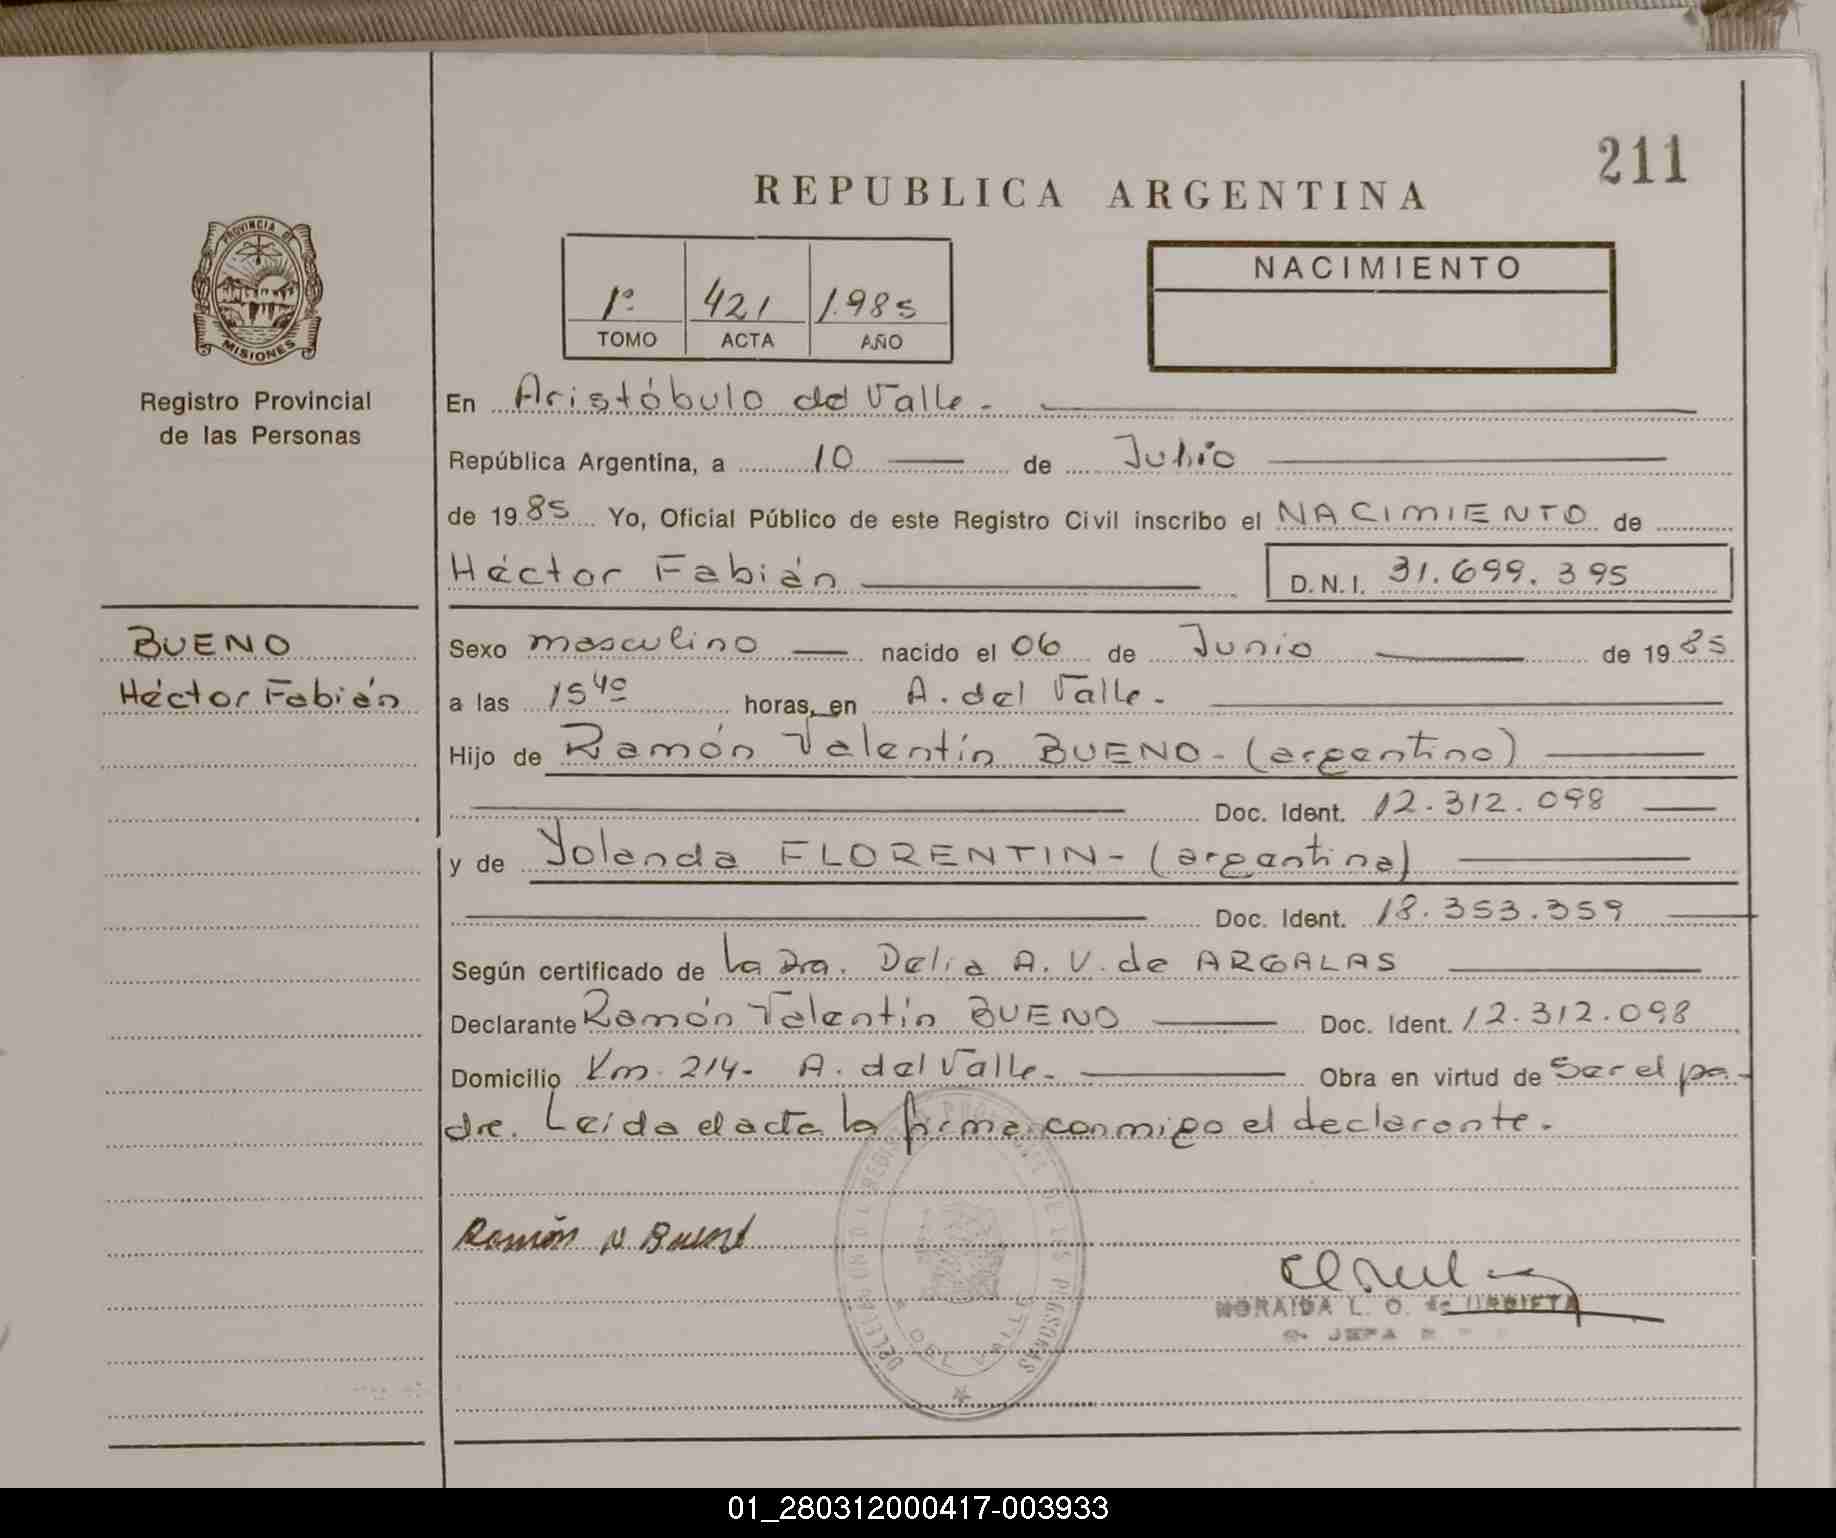 211
REPUBLICA ARGENTINA
PROVINCIA DE
MISIONES
Registro Provincial
de las Personas
1º 421 1.985
TOMO ACTA AÑO
NACIMIENTO
En Aristóbulo del Valle.-
República Argentina, a 10 de Julio
de 1985 Yo, Oficial Público de este Registro Civil inscribo el NACIMIENTO de
Héctor Fabián D.N.I. 31.699.395
BUENO
Héctor Fabián
Sexo masculino nacido el 06 de Junio de 1985
a las 15⁴⁰ horas, en A. del Valle.-
Hijo de Ramón Valentín BUENO-(argentino)
Doc. Ident. 12.312.098
y de Yolanda FLORENTIN-(argentina)
Doc. Ident. 18.353.359
Según certificado de la Dra. Delia A. V. de ARGALAS
Declarante Ramón Valentín BUENO Doc. Ident. 12.312.098
Domicilio Km. 214- A. del Valle.- Obra en virtud de Ser el pa-
dre. Leída el acta la firma conmigo el declarante.
Ramón V Bueno
DEL VALLE
DE LAS PERSONAS
MORAIDA L. O. de URRIETA
JEFA
01_280312000417-003933